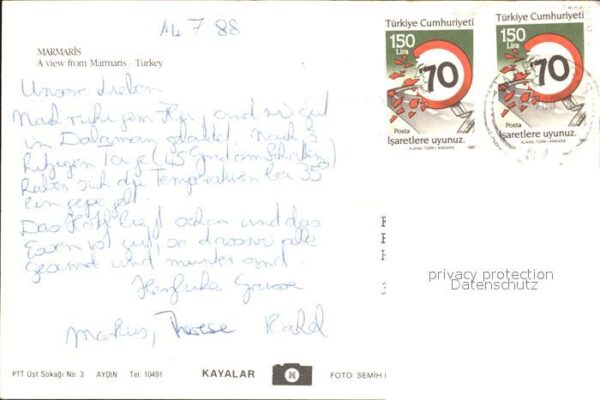 14.7.88
MARMARİS
A view from Marmaris - Turkey
Unsere Lieben
Nach ruhigem Flug sind wir gut
in Dalaman gelandet. Nach 3
Tage (45 Grad am Schatten)
haben sich die Temperaturen bei 35°
Das Hotel liegt schön und das
Essen ist gut, so dass wir alle
gesund und munter sind.
Herzliche Grüsse
Markus, Therese
Türkiye Cumhuriyeti
150
Lira
70
Posta
İşaretlere uyunuz.
AJANS-TÜRK-ANKARA 1987
Türkiye Cumhuriyeti
150
Lira
70
Posta
İşaretlere uyunuz.
AJANS-TÜRK-ANKARA
privacy protection
Datenschutz
PTT Üst Sokağı No: 3 AYDIN Tel: 10491 KAYALAR K FOTO: SEMİH